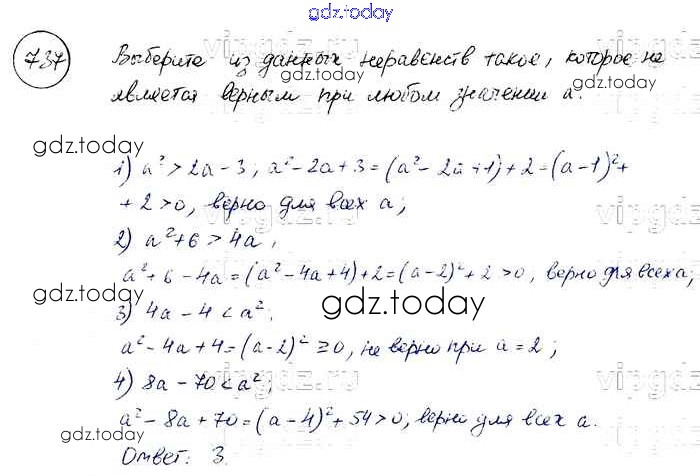 gdz.today
737 Выберите из данных неравенств такое, которое не
gdz.today gdz.today
является верным при любом значении a.
gdz.today
1) a² > 2a - 3; a² - 2a + 3 = (a² - 2a + 1) + 2 = (a - 1)² +
+ 2 > 0, верно для всех a;
gdz.today
2) a² + 6 > 4a;
a² + 6 - 4a = (a² - 4a + 4) + 2 = (a - 2)² + 2 > 0, верно для всех a;
gdz.today gdz.today
3) 4a - 4 < a²;
a² - 4a + 4 = (a - 2)² ≥ 0, не верно при a = 2;
4) 8a - 70 < a²;
a² - 8a + 70 = (a - 4)² + 54 > 0, верно для всех a.
gdz.today gdz.today
Ответ: 3.